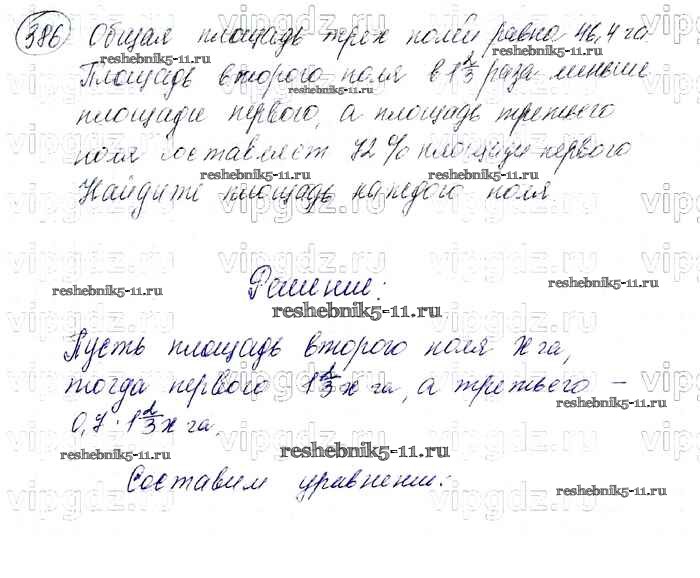 386 Общая площадь трех полей равна 46,4 га
Площадь второго поля в 1 2/3 раза меньше
площади первого, а площадь третьего
поля составляет 72 % площади первого
Найдите площадь каждого поля
Решение:
Пусть площадь второго поля x га,
тогда первого 1 2/3 x га, а третьего –
0,7 · 1 2/3 x га.
Составим уравнение:
reshebnik5-11.ru
vipgdz.ru